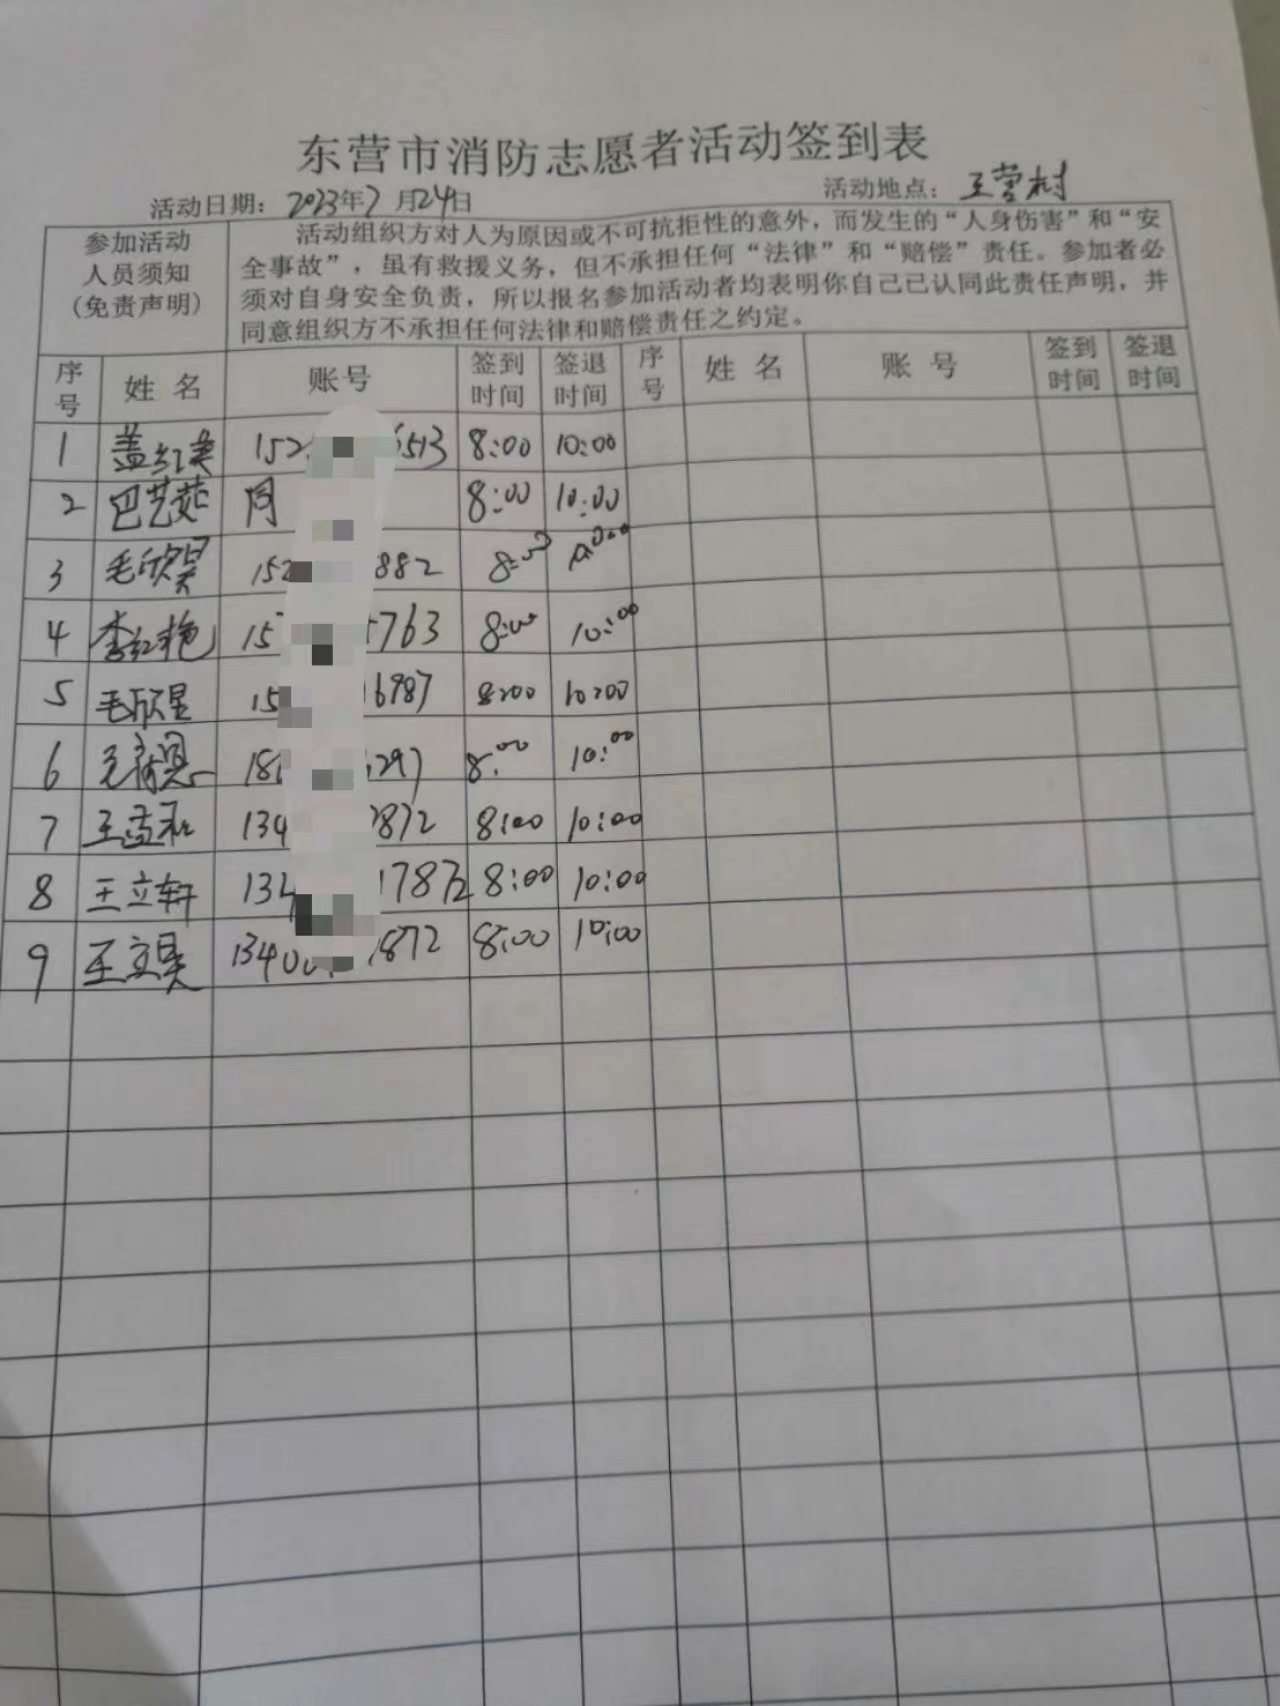 东营市消防志愿者活动签到表
活动日期：2023年7月24日 活动地点：王营村
参加活动人员须知（免责声明）
活动组织方对人为原因或不可抗拒性的意外，而发生的“人身伤害”和“安
全事故”，虽有救援义务，但不承担任何“法律”和“赔偿”责任。参加者必
须对自身安全负责，所以报名参加活动者均表明你自己已认同此责任声明，并
同意组织方不承担任何法律和赔偿责任之约定。
序号 姓名 账号 签到时间 签退时间 序号 姓名 账号 签到时间 签退时间
1 盖红美 152 6513 8:00 10:00
2 巴艺茹 同 8:00 10:00
3 毛欣昊 152 882 8:00
4 李红艳 15 763 8:00 10:00
5 毛欣星 15 6987 8:00 10:00
6 181 297 8:00 10:00
7 王孟和 134 872 8:00 10:00
8 王立轩 134 17872 8:00 10:00
9 王立昊 1340 1872 8:00 10:00